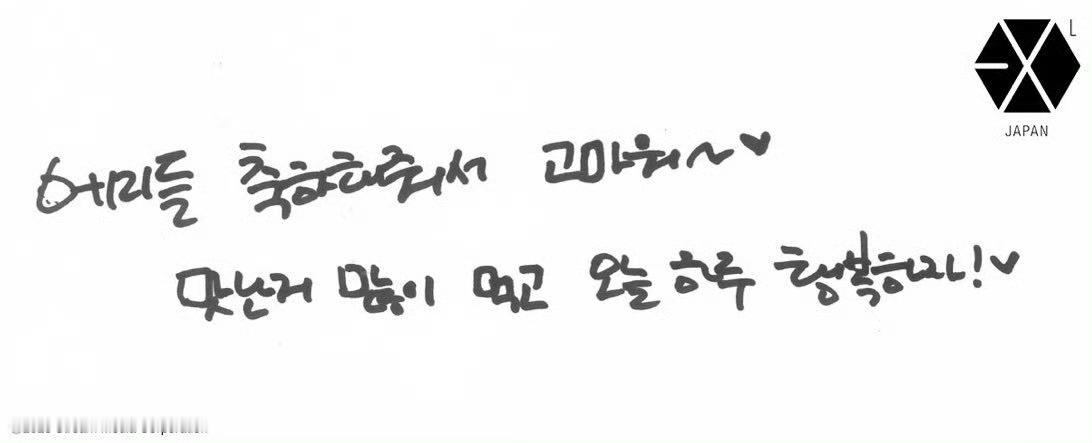 L
EXO
JAPAN
에리들 축하해줘서 고마워~♥
맛난거 많이 먹고 오늘 하루 행복하자!♥